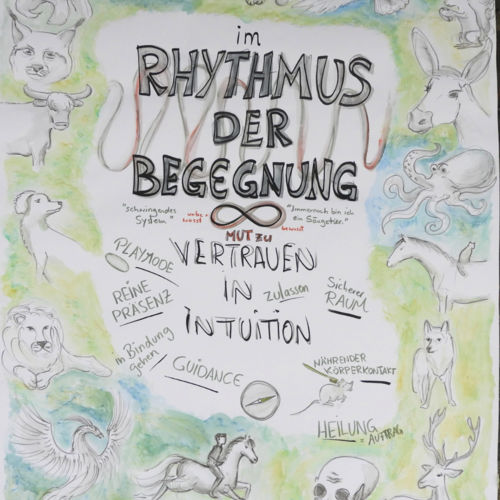 im
RHYTHMUS
DER
BEGEGNUNG
"schwingendes
System"
unbe-
wusst
"Immernoch bin ich
ein Säugetier."
bewusst
MUT zu
VERTRAUEN
IN
INTUITION
zulassen
PLAYMODE
REINE
PRÄSENZ
Sicherer
RAUM
in Bindung
gehen
GUIDANCE
NÄHRENDER
KÖRPERKONTAKT
HEILUNG
= AUFTRAG